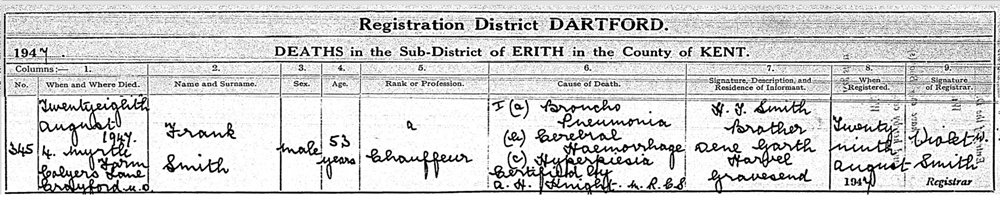 Registration District DARTFORD.
1947. DEATHS in the Sub-District of ERITH in the County of KENT.
Columns:— 1. 2. 3. 4. 5. 6. 7. 8. 9.
No. When and Where Died. Name and Surname. Sex. Age. Rank or Profession. Cause of Death. Signature, Description, and Residence of Informant. When Registered. Signature of Registrar.
345
Twentyeighth
August
1947.
4. Myrtle
Farm
Colyers Lane
Crayford u.d.
Frank
Smith
male
53
years
a
Chauffeur
I (a) Broncho
Pneumonia
(b) Cerebral
Haemorrhage
(c) Hyperpiesia
Certified by
A. H. Knight. M.R.C.S
H. J. Smith
Brother
Dene Garth
Harvel
Gravesend
Twenty
ninth
August
1947
Violet
Smith
Registrar